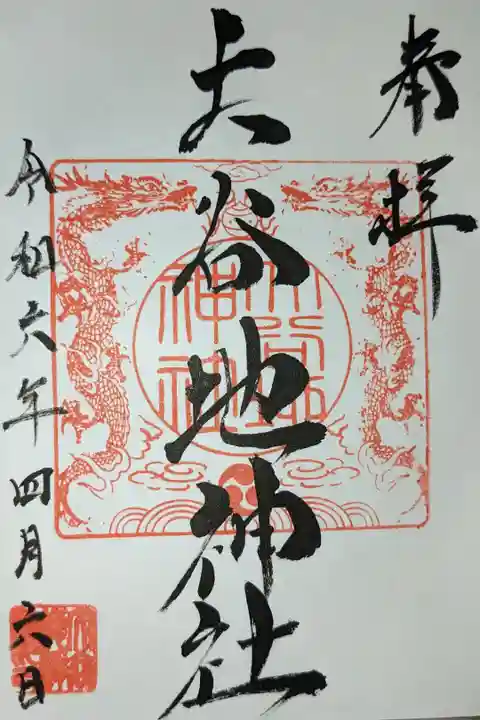 奉拝
大谷地神社
令和六年四月六日